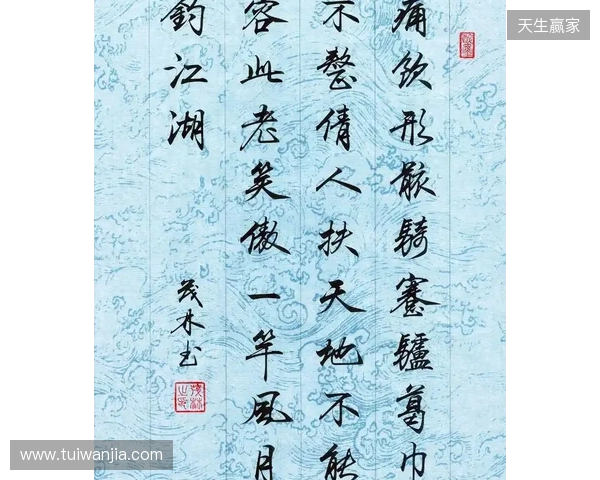 天生赢家
痛飲形骸騎蹇驢葛巾
不整倩人扶天地不能
容此老笑傲一竿風月
釣江湖
茂林书
www.tuiwanjia.com